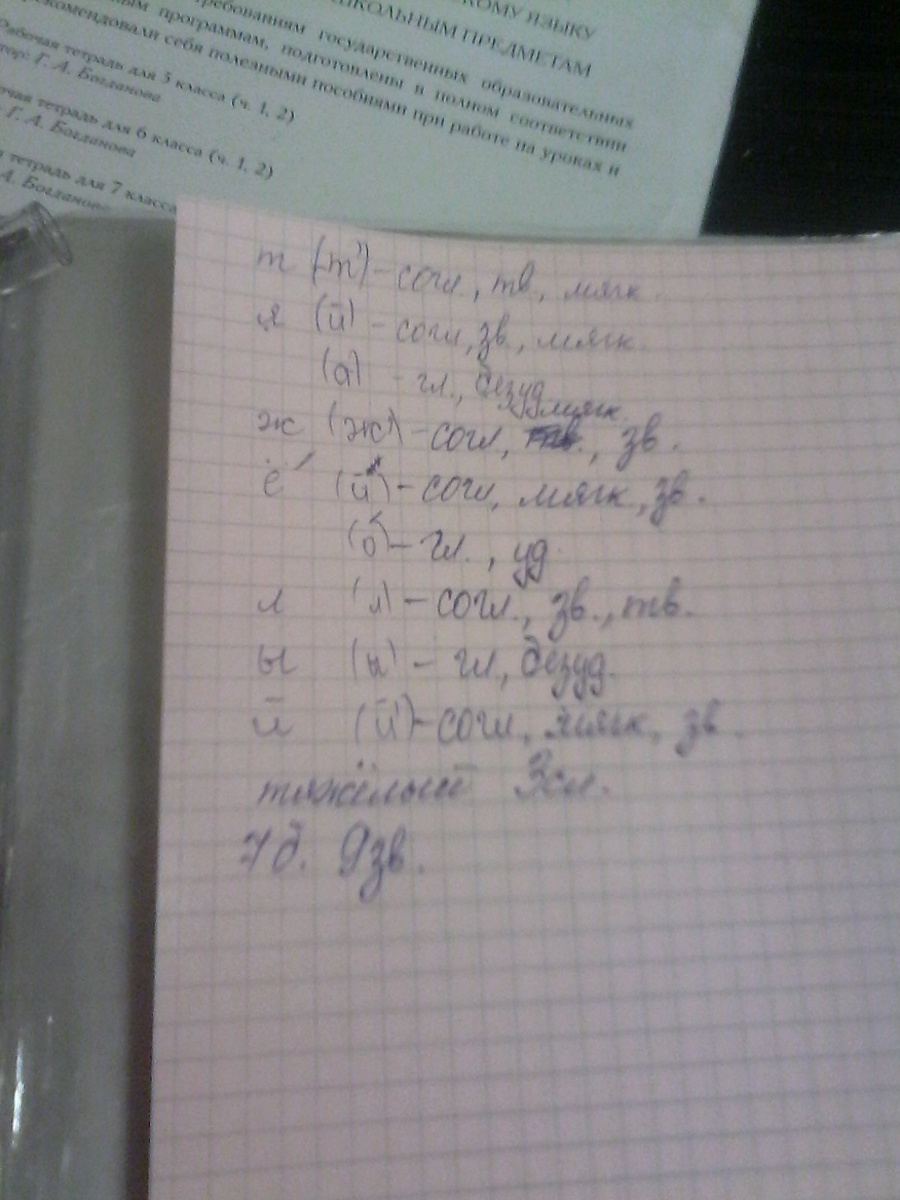 КОМУ ЯЗЫКУ
КОЛЬНЫМ ПРЕДМЕТАМ
требованиям государственных образовательных
ным программам, подготовлены в полном соответствии
рекомендовали себя полезными пособиями при работе на уроках и
Рабочая тетрадь для 5 класса (ч. 1, 2)
тор: Г. А. Богданова
чая тетрадь для 6 класса (ч. 1, 2)
Г. А. Богданова
тетрадь для 7 класса
А. Богданова
т (т') – согл., тв., мягк.
я (й) – согл, зв., мягк.
(а) – гл., безуд
мягк.
ж (ж') – согл, тв., зв.
ё (й') – согл, мягк, зв.
(о́) – гл., уд
л (л) – согл., зв., тв.
ы (ы) – гл., безуд.
й (й') – согл, мягк, зв.
тяжёлый 3сл.
7 б. 9зв.